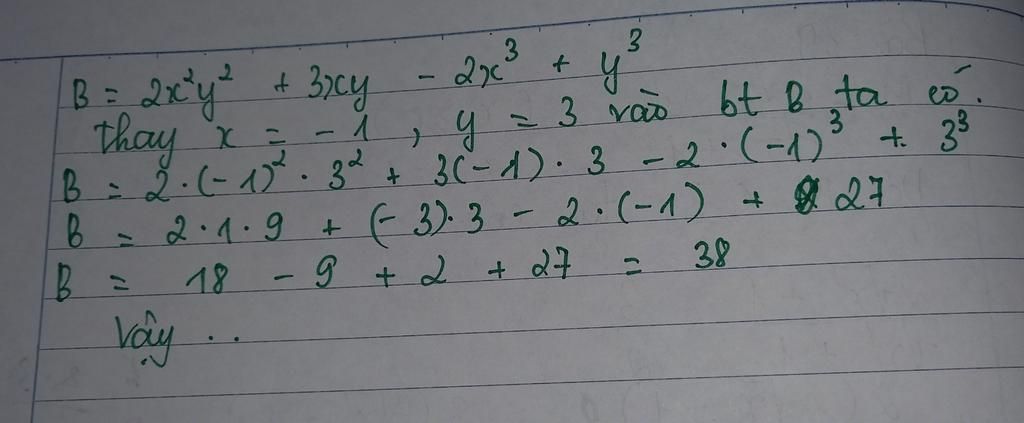 B = 2x²y² + 3xy - 2x³ + y³
thay x = -1 , y = 3 vào bt B ta có.
B = 2·(-1)²·3² + 3(-1)·3 - 2·(-1)³ + 3³
B = 2·1·9 + (-3)·3 - 2·(-1) + 27
B = 18 - 9 + 2 + 27 = 38
Vậy ..